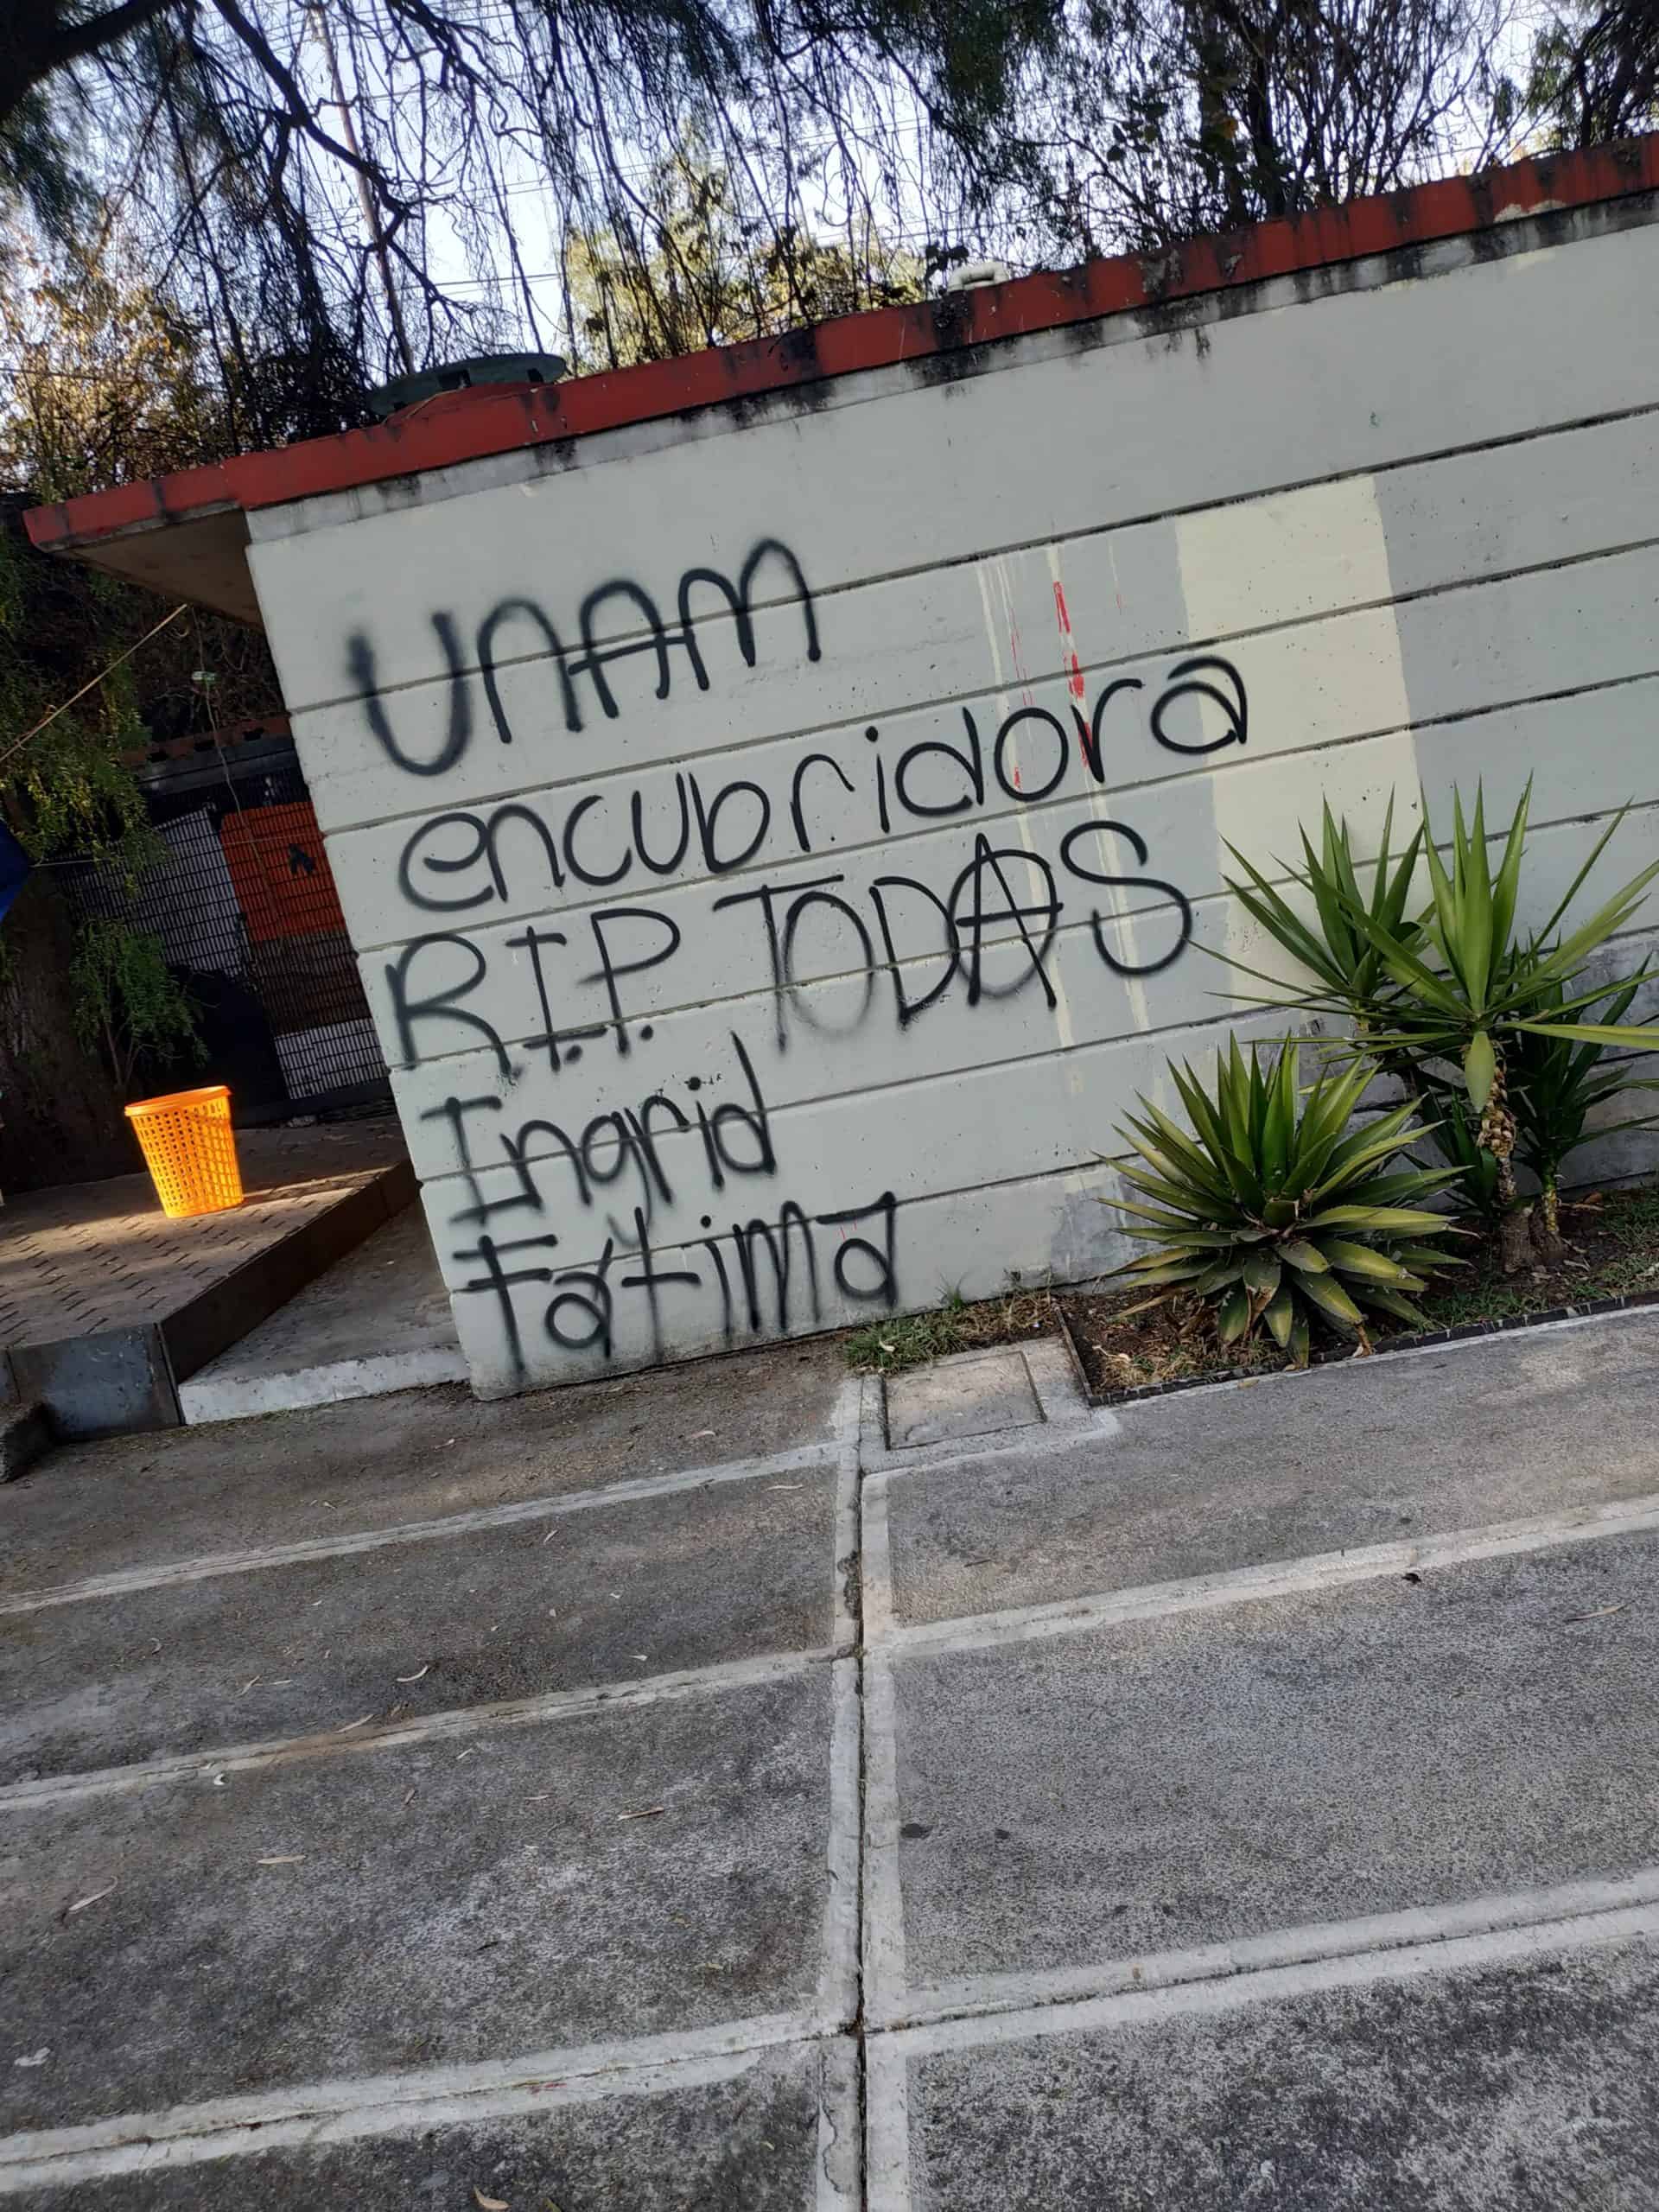 UNAM
encubridora
R.I.P. TODAS
Ingrid
Fátima